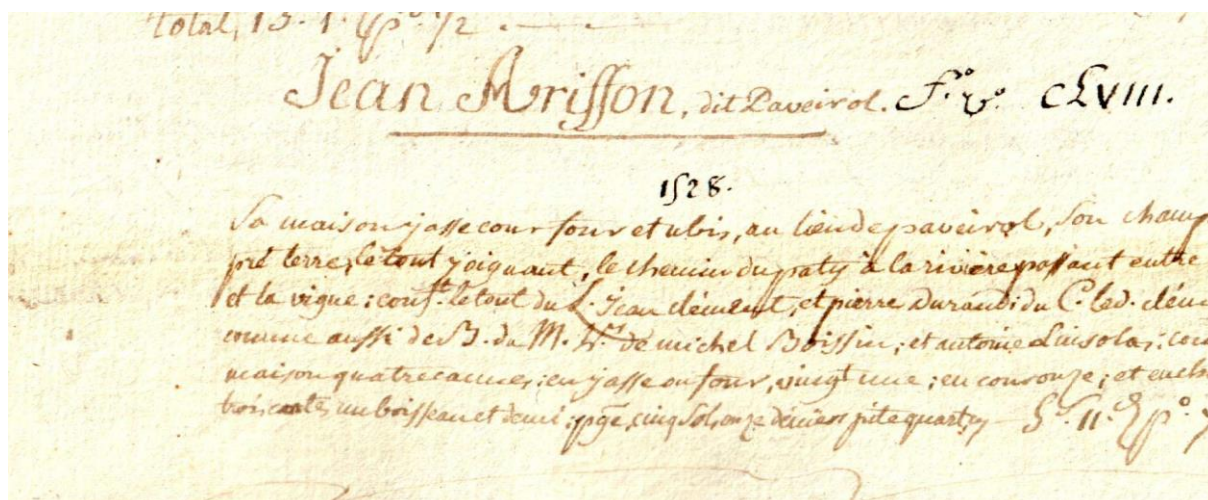 total, 13. 1. 1/2
Jean Arisson, dit Paveirol. F.º v.º CLVIII.
1528.
Sa maison jasse cour four et ubis, au lieu de paveirol, son champ
pré terre, le tout joignant, le chemin du paty à la rivière passant entre
et la vigne: conf.t le tout du L. Jean clément, et pierre Durand: du C. led. clém
comme aussi de B. da M. de michel Boissin; et antoine Luisola: con
maison quatre cannes; en jasse ou four, vingt une; en cour onze; et en ch
trois cartes un boisseau et demi: pge, cinq sols onze deniers pite quart